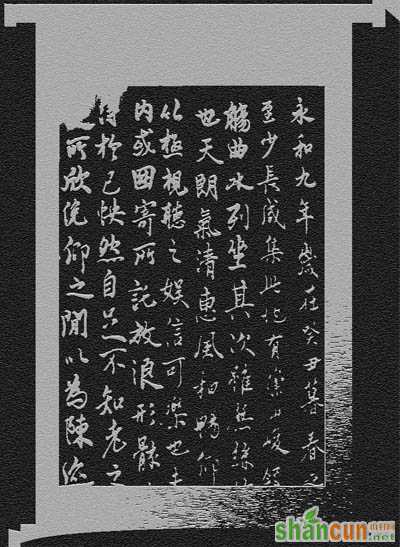 永和九年歲在癸丑暮春之
至少長咸集此地有崇山峻領
觴曲水列坐其次雖無絲
也天朗氣清惠風和暢仰
以極視聽之娛信可樂也夫
內或因寄所託放浪形骸
於己怏然自足不知老之
所欣俛仰之閒以為陳迹
shancun
.net